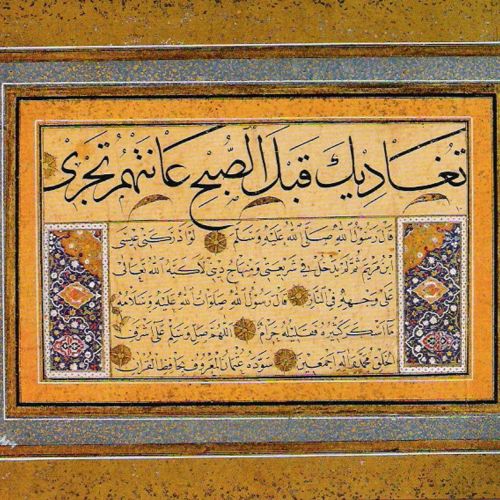 تغاديك قبل الصبح عانتهم تجري
قال رسول الله صلى الله عليه وسلم لو ادركني عيسى
ابن مريم ثم لم يدخل في شريعتي ومنهاج ديني لاكبه الله تعالى
على وجهه في النار قال رسول الله صلوات الله عليه وسلامه
ما اسكر كثيره فقليله حرام اللهم صل وسلم على اشرف
الخلق محمد وآله اجمعين سوده عثمان المعروف بحافظ القرآن